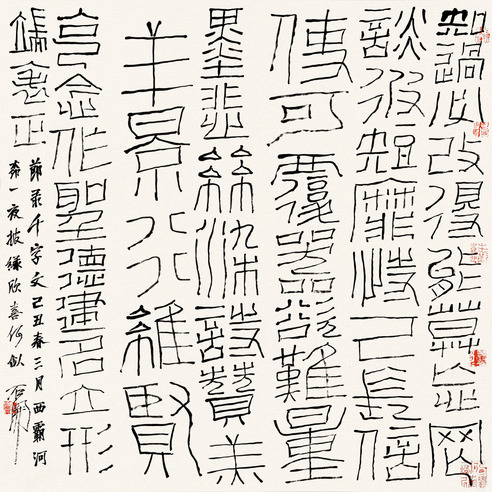 知過必改得能莫忘罔
談彼短靡恃己長信
使可覆器欲難量
墨悲絲染詩讚羔
羊景行維賢
克念作聖德建名立形
端表正
節录千字文己丑春三月西霸河
一夜披緑欣喜何似